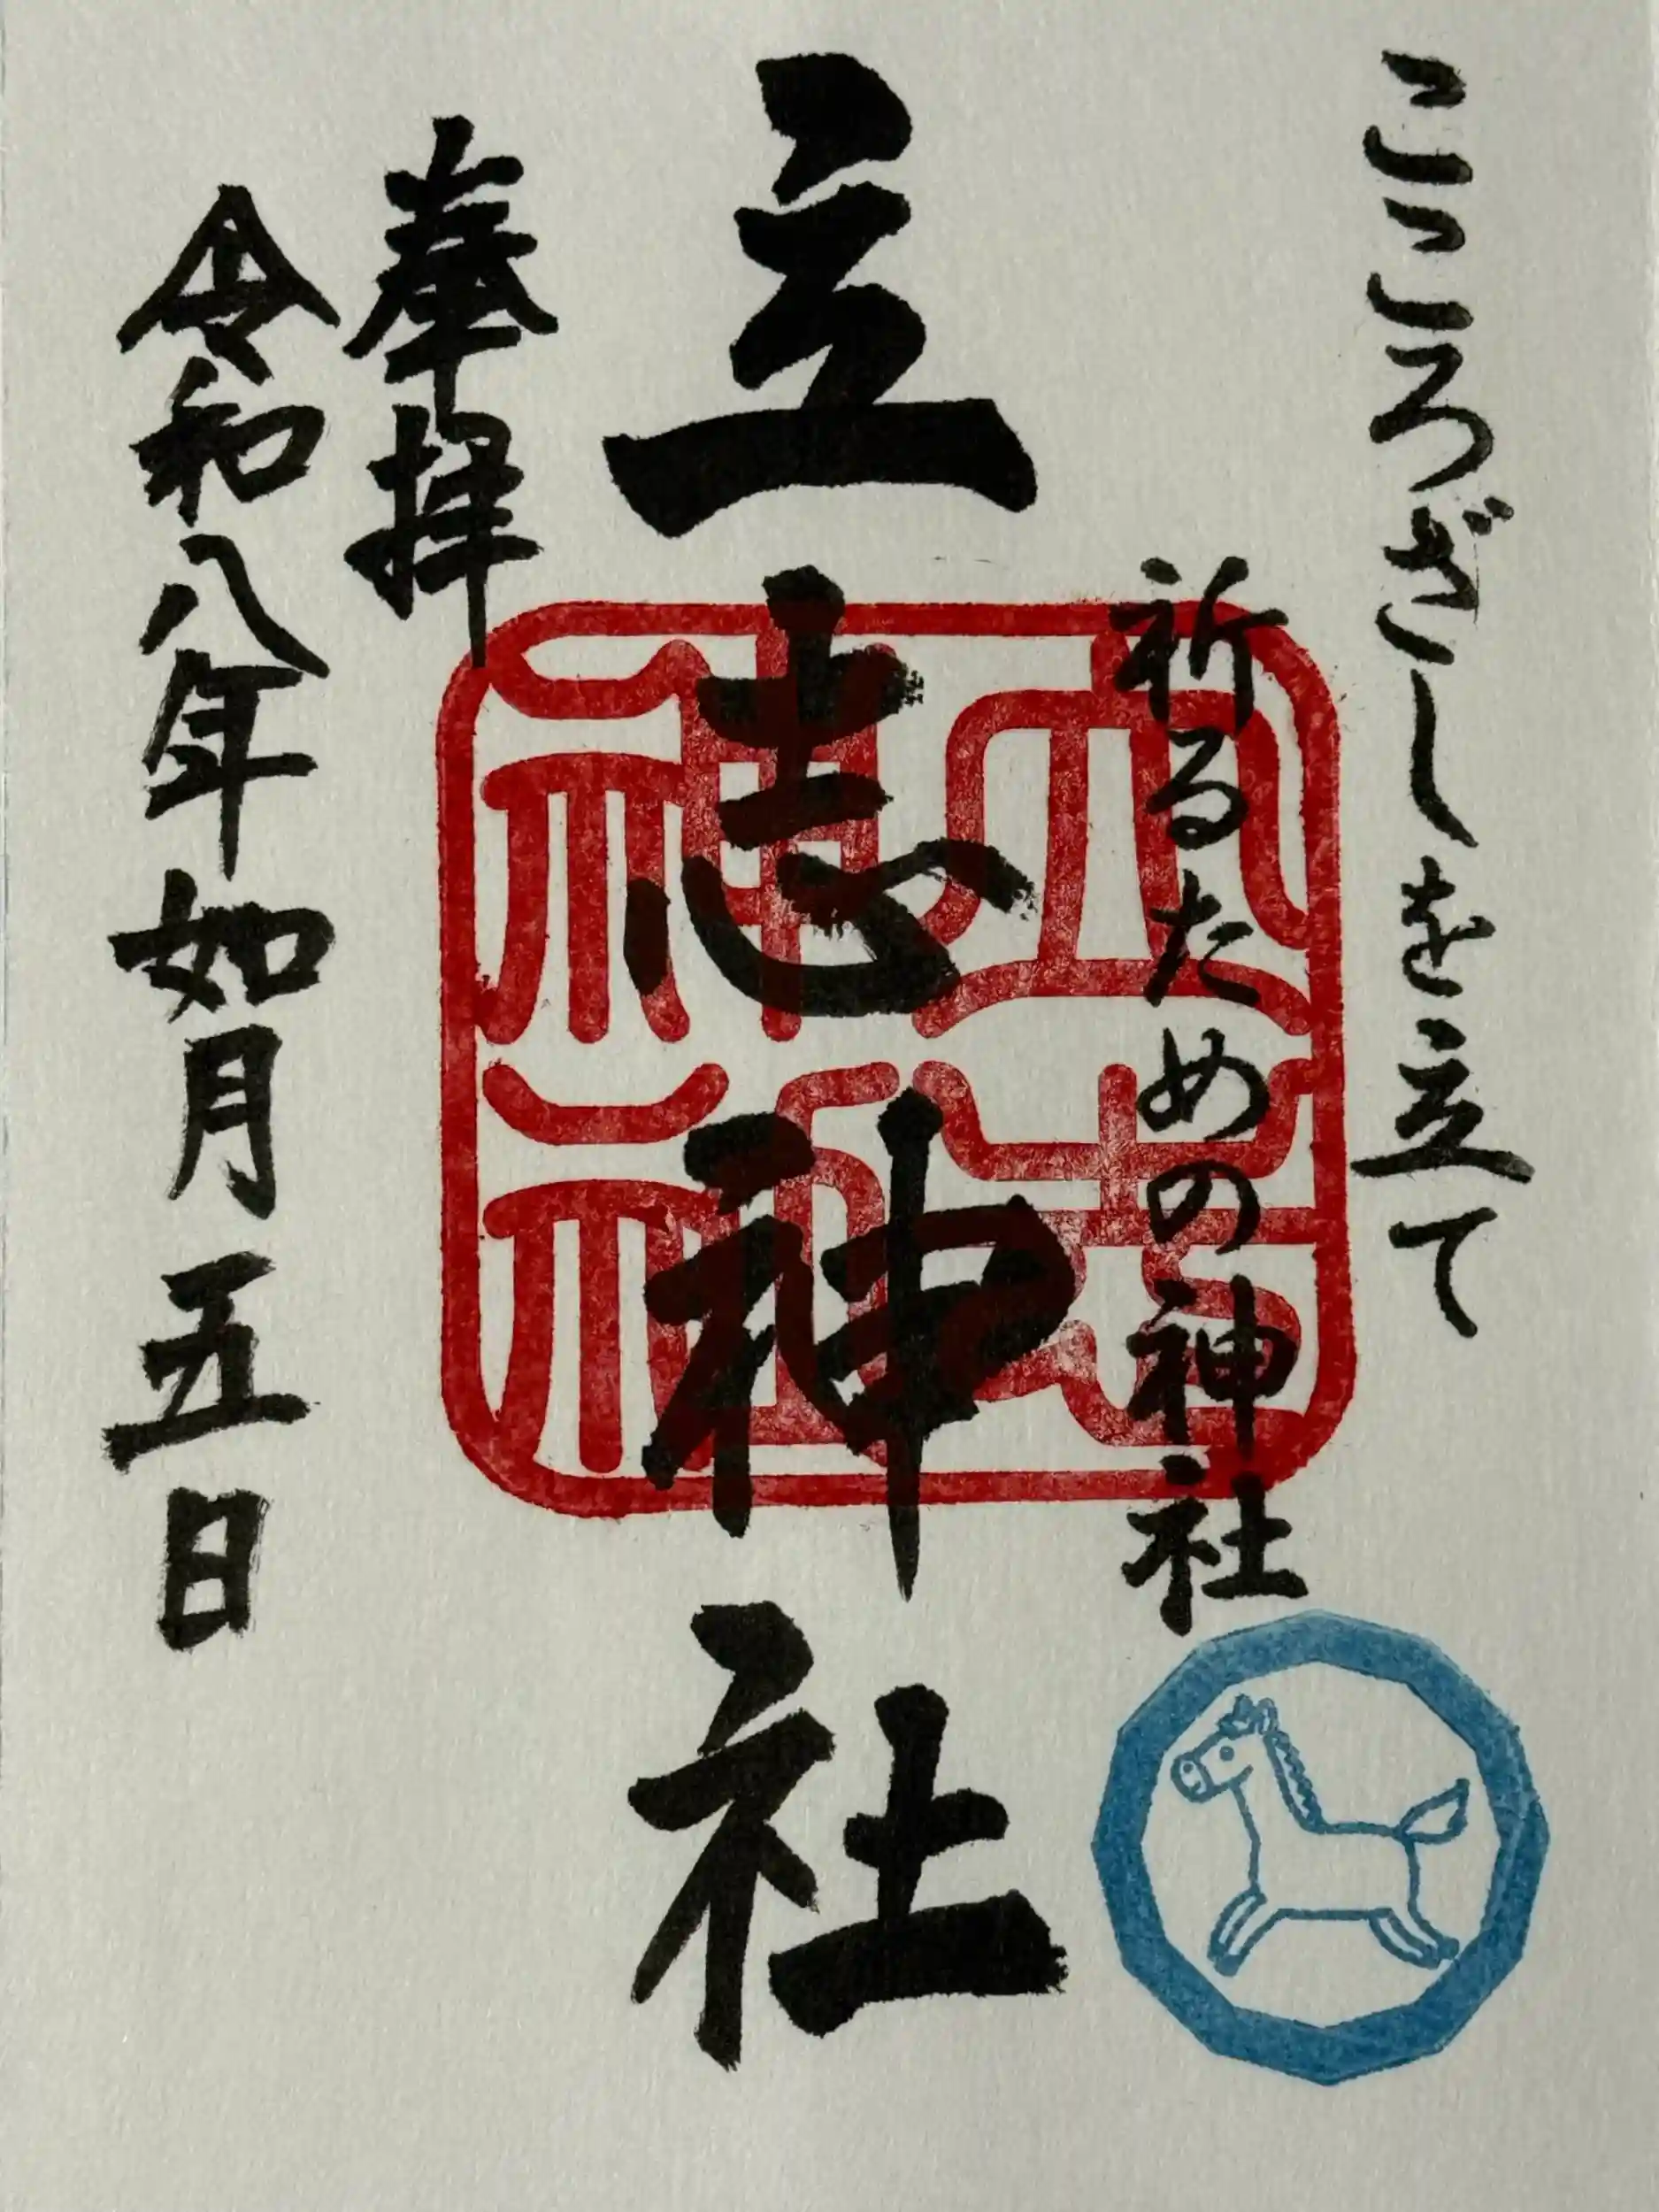 こころざしを立て
祈るための神社
立志神社
奉拝
令和八年如月五日
立志神社